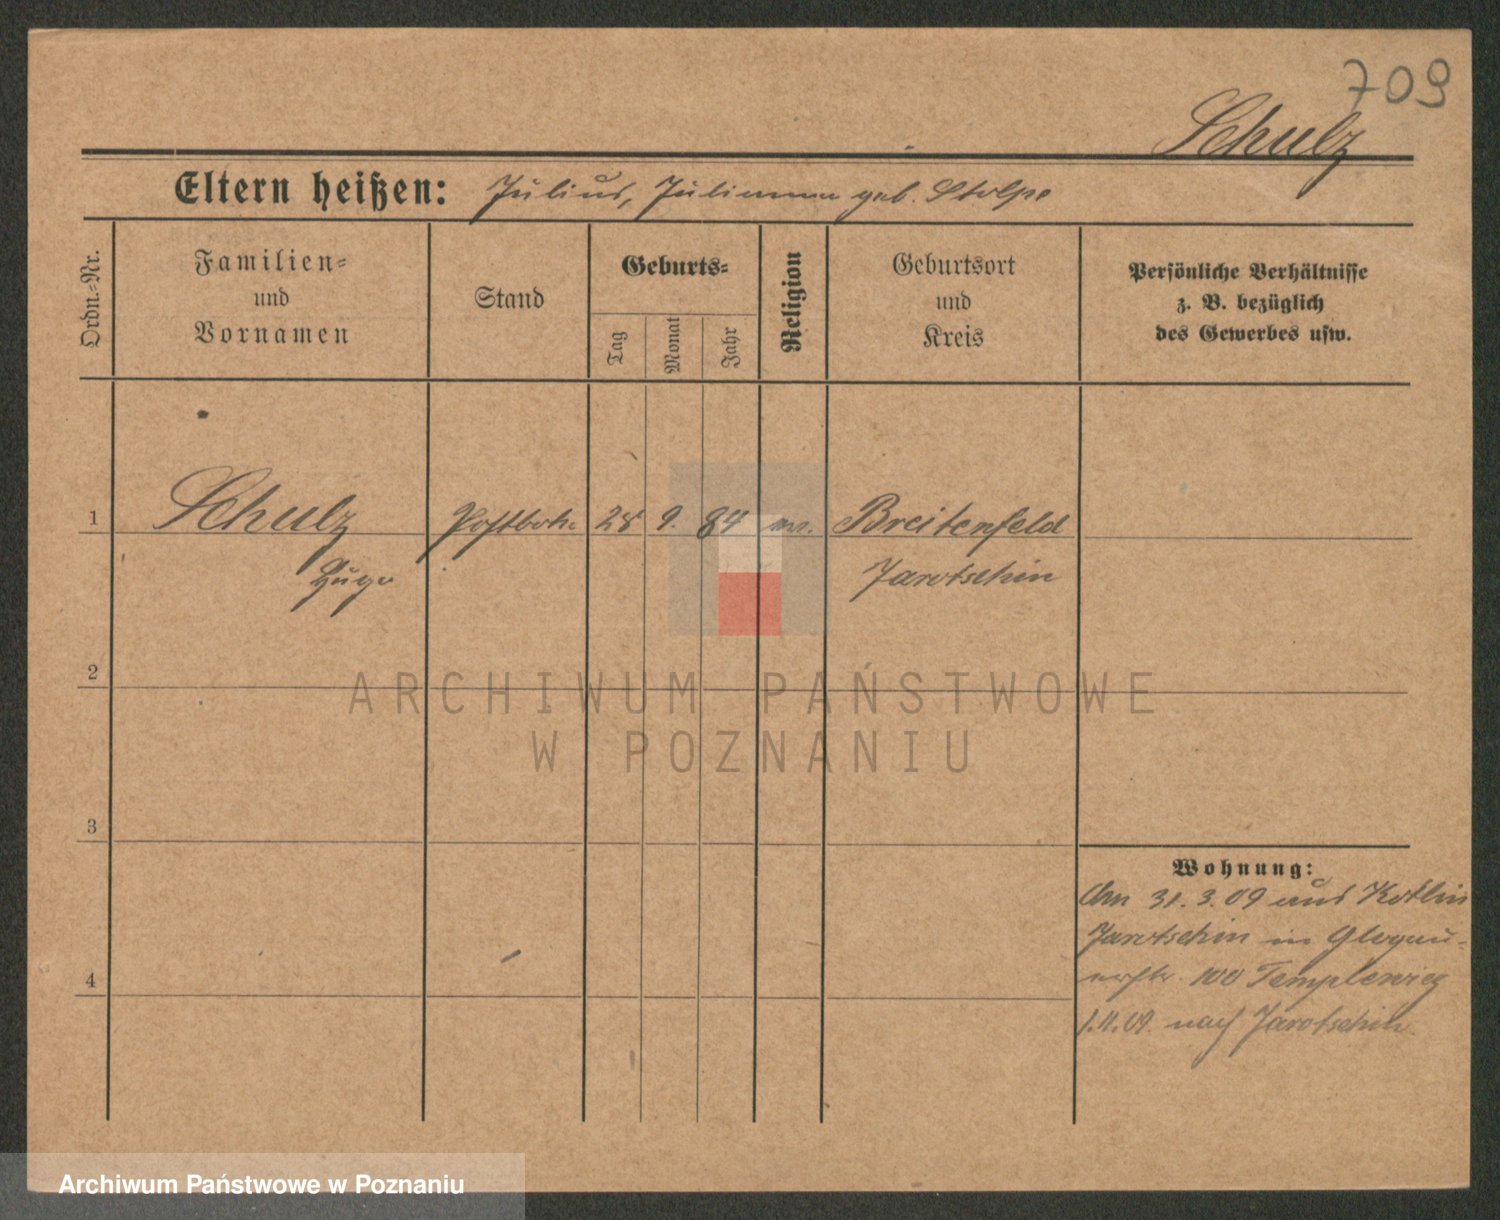 709
Schulz
Eltern heißen: Julius, Julianna geb. Stolpe
Ordn.-Nr.
Familien-
und
Vornamen
Stand
Geburts-
Tag
Monat
Jahr
Religion
Geburtsort
und
Kreis
Persönliche Verhältnisse
z. B. bezüglich
des Gewerbes usw.
1 Schulz Postbote 28 9. 84 Breitenfeld
Hugo Jarotschin
2
3
4
Wohnung:
Am 31.3.09 aus Kotlin
Jarotschin in Glogau-
100 Templewieg
1.11.09. nach Jarotschin
ARCHIWUM PAŃSTWOWE
W POZNANIU
Archiwum Państwowe w Poznaniu